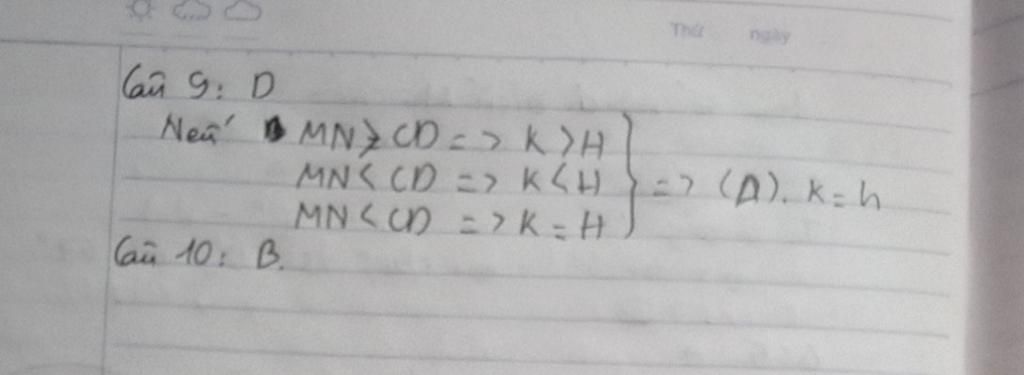 Thứ ngày
Câu 9: D
Nếu MN > CD => K > H
MN < CD => K < H } => (A). k = h
MN < CD => K = H
Câu 10: B.